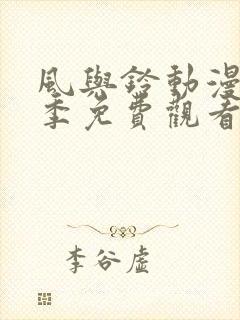 風與鈴動漫
季免費觀看
李谷虛